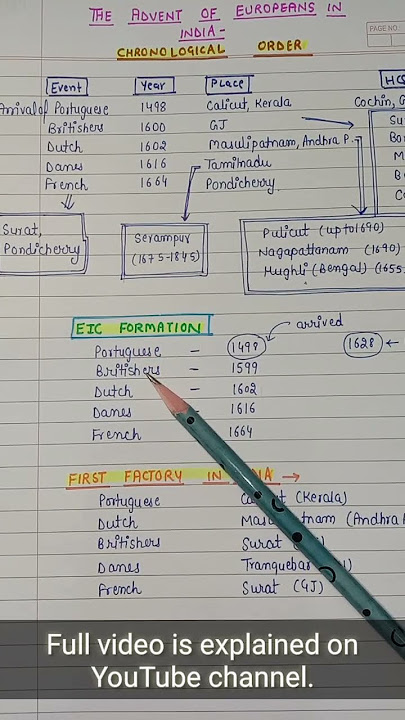 THE ADVENT OF EUROPEANS IN
INDIA-
CHRONOLOGICAL ORDER
PAGE NO
Event Year Place
Arrival of Portuguese 1498 Calicut, Kerala Cochin, G
Britishers 1600 GJ
Dutch 1602 Masulipatnam, Andhra P.
Danes 1616 Tamilnadu
French 1664 Pondicherry
Surat,
Pondicherry
Serampur
(1675-1845)
Pulicut (upto1690)
Nagapattanam (1690)
Hughli (Bengal) (1655
EIC FORMATION
arrived
Portuguese - 1498 1628
Britishers - 1599
Dutch - 1602
Danes 1616
French 1664
FIRST FACTORY IN
Portuguese (Kerala)
Dutch (Andhra
Britishers Surat
Danes Tranquebar
French Surat (GJ)
Full video is explained on
YouTube channel.